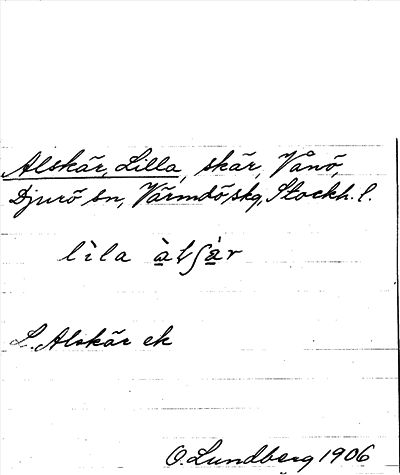 Alskär, Lilla, skär, Vånö,
Djurö sn, Värmdö skg, Stockh. l.
lìla àlʃàr
L. Alskär ek
O. Lundberg 1906